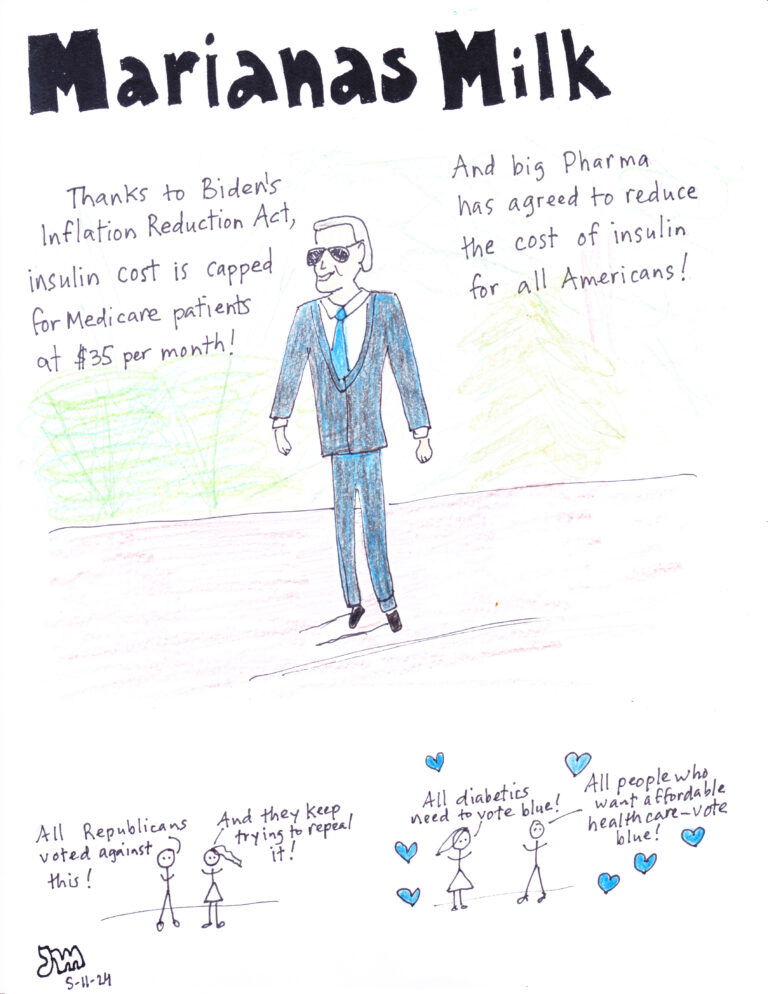 Marianas Milk
Thanks to Biden's
Inflation Reduction Act,
insulin cost is capped
for Medicare patients
at $35 per month!
And big Pharma
has agreed to reduce
the cost of insulin
for all Americans!
All Republicans
voted against
this!
And they keep
trying to repeal
it!
All diabetics
need to vote blue!
All people who
want affordable
healthcare-vote
blue!
JM
5-11-24